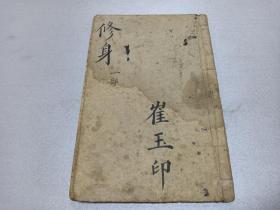 修身
一部
崔玉印